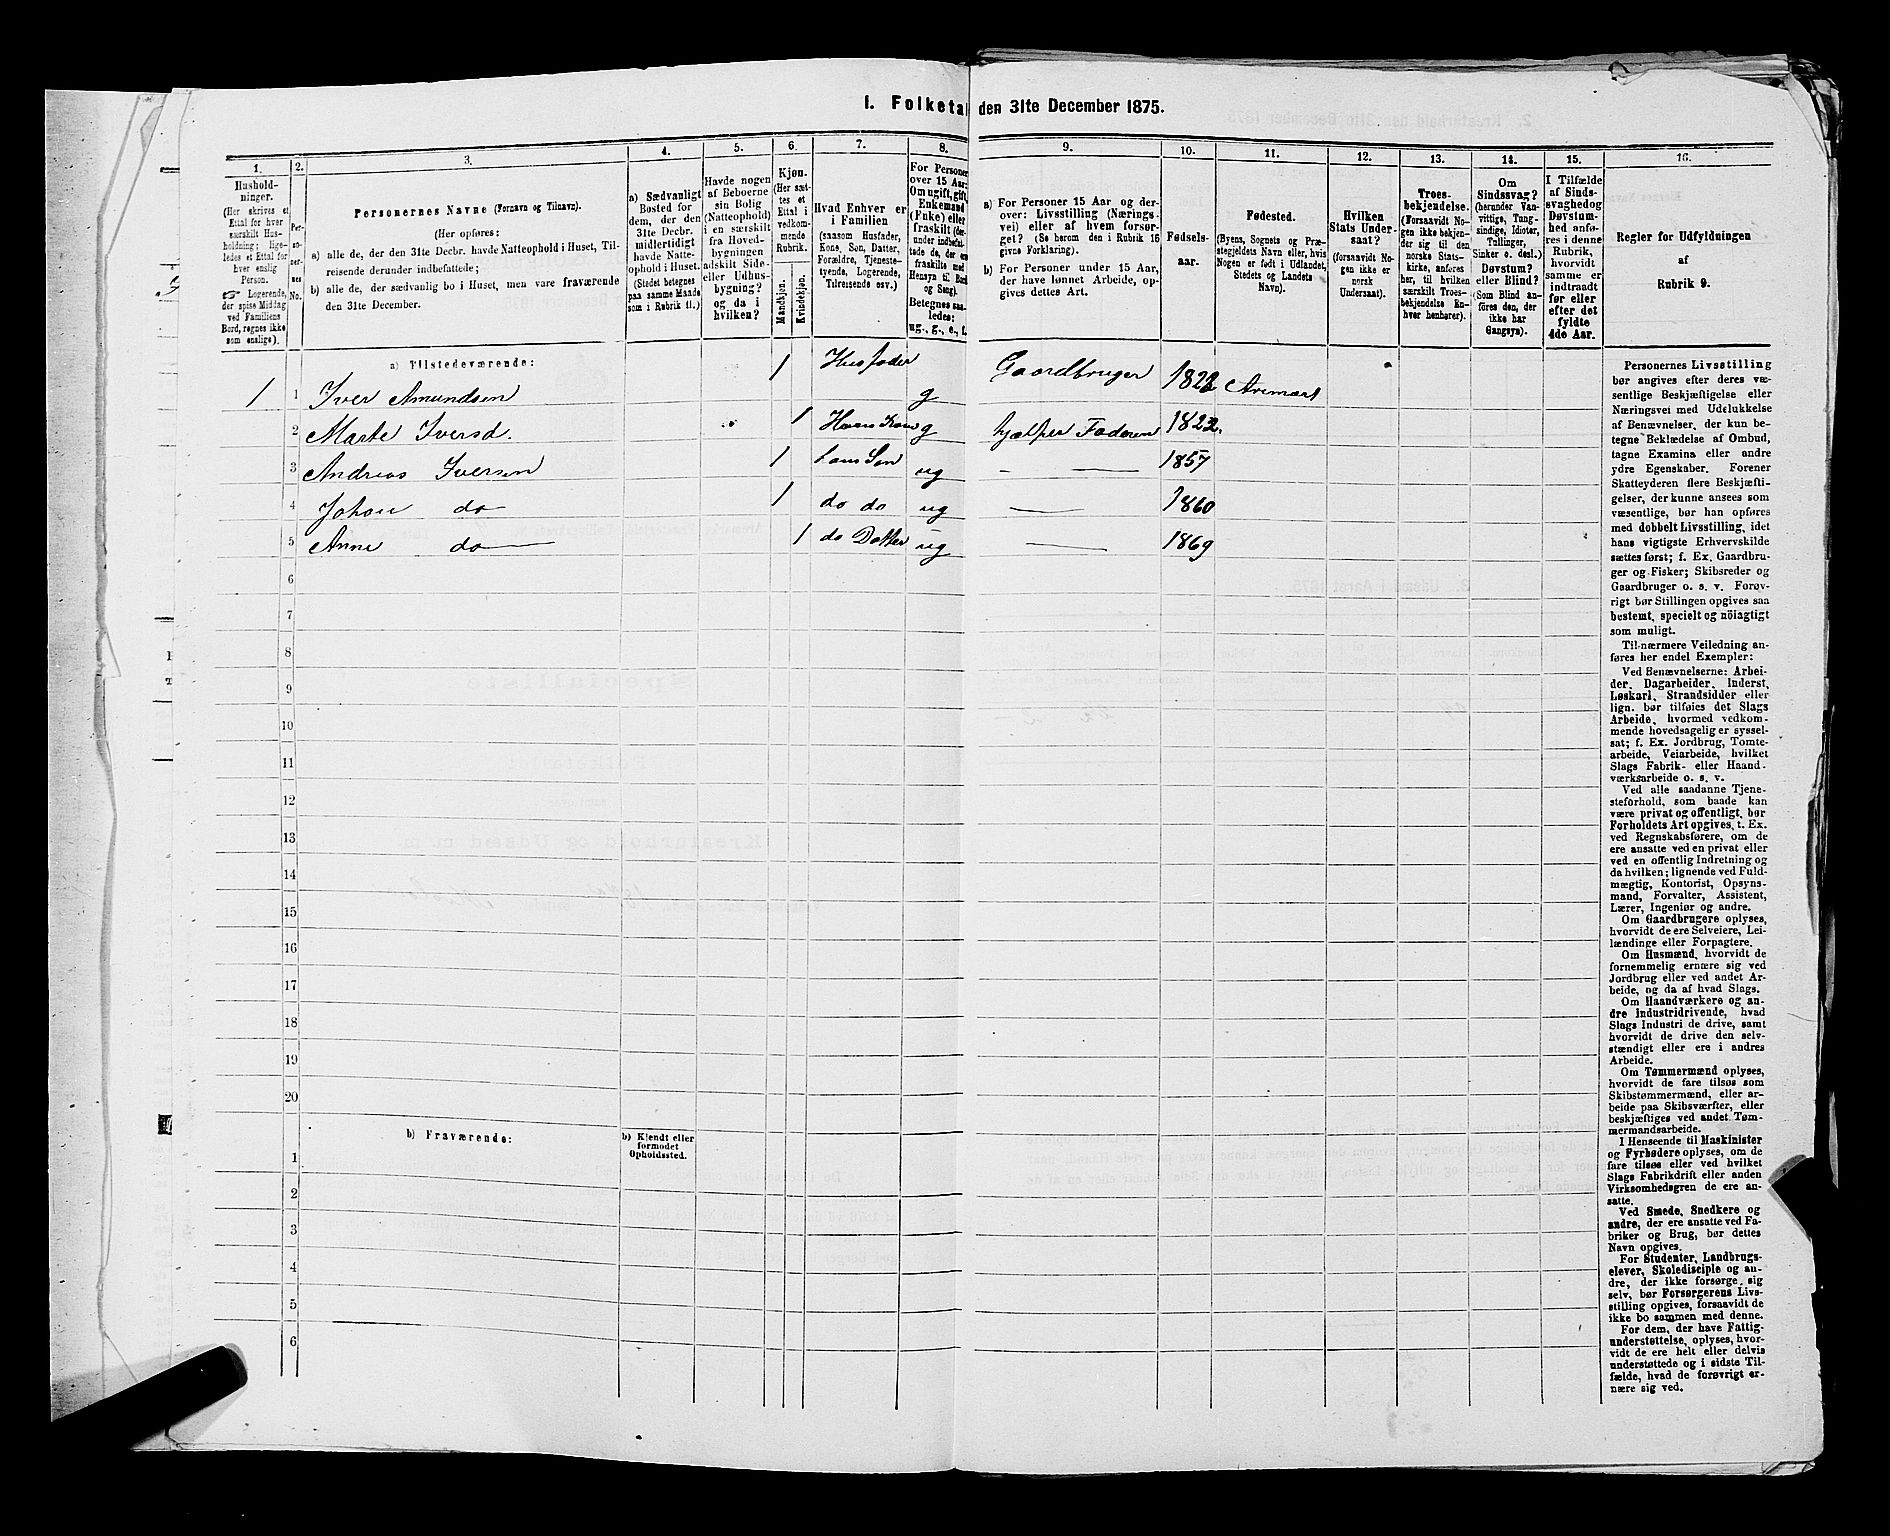 1. Folketal den 31te December 1875.
1. 2. 3. 4. 5. 6. 7. 8. 9. 10. 11. 12. 13. 14. 15. 16.
Hushold-
ninger.
(Her skrives et
Ettal for hver
særskilt Hus-
holdning; lige-
ledes et Ettal for
hver enslig
Person.
☞ Logerende,
der spise Middag
ved Familiens
Bord, regnes ikke
som enslige).
Per-
so-
ner-
nes
No.
Personernes Navne (Fornavn og Tilnavn).
(Her opføres:
a) alle de, der den 31te Decbr. havde Natteophold i Huset, Til-
reisende derunder indbefattede;
b) alle de, der sædvanlig bo i Huset, men vare fraværende
den 31te December.
a) Sædvanligt
Bosted for
dem, der den
31te Decbr.
midlertidigt
havde Natte-
ophold i Huset.
(Stedet betegnes
paa samme Maade
som i Rubrik 11.)
Havde nogen
af Beboerne
sin Bolig
(Natteophold)
i en særskilt
fra Hoved-
bygningen
adskilt Side-
eller Udhus-
bygning?
og da i
hvilken?
Kjøn.
(Her sæt-
tes et
Ettal i
vedkom-
mende
Rubrik.
Mandkjøn.
Kvindekjøn.
Hvad Enhver er
i Familien
(saasom Husfader,
Kone, Søn, Datter,
Forældre, Tjeneste-
tyende, Logerende,
Tilreisende osv.)
For Personer
over 15 Aar:
Om ugift, gift,
Enkemand
(Enke) eller
fraskilt (der-
under indbefat-
tede de, der ere
fraskilte med
Hensyn til Bord
og Seng).
Betegnes saa-
ledes:
ug., g., e., f.
a) For Personer 15 Aar og der-
over: Livsstilling (Nærings-
vei) eller af hvem forsør-
get? (Se herom den i Rubrik 16
givne Forklaring).
b) For Personer under 15 Aar,
der have lønnet Arbeide, op-
gives dettes Art.
Fødsels-
aar.
Fødested.
(Byens, Sognets og Præ-
stegjeldets Navn eller, hvis
Nogen er født i Udlandet,
Stedets og Landets
Navn).
Hvilken
Stats Under-
saat?
(forsaavidt No-
gen ikke er
norsk
Undersaat).
Troes-
bekjendelse.
(Forsaavidt No-
gen ikke bekjen-
der sig til den
norske Stats-
kirke, anføres
her, til hvilken
særskilt Troes-
bekjendelse En-
hver henhører).
Om
Sindssvag?
(herunder Van-
vittige, Tung-
sindige, Idioter,
Tullinger,
Sinker o. desl.)
Døvstum?
eller Blind?
(Som Blind an-
føres den, der
ikke har
Gangsyn).
I Tilfælde
af Sinds-
svaghed og
Døvstum-
hed anfø-
res i denne
Rubrik,
hvorvidt
samme er
indtraadt
før eller
efter det
fyldte
4de Aar.
Regler for Udfyldningen
af
Rubrik 9.
a) Tilstedeværende:
1 1 Iver Amundsen 1 Husfader g Gaardbruger 1822 Aremark
2 Marte Iversd. 1 Hans Kone g hjælper Faderen 1822.
3 Andreas Iversen 1 hans Søn ug — — 1857
4 Johan do 1 do do ug — 1860
5 Anne do 1 do Datter ug — 1869
6
7
8
9
10
11
12
13
14
15
16
17
18
19
20
b) Fraværende:
b) Kjendt eller
formodet
Opholdssted.
1
2
3
4
5
6
Personernes Livsstilling
bør angives efter deres væ-
sentlige Beskjæftigelse eller
Næringsvei med Udelukkelse
af Benævnelser, der kun be-
tegne Beklædelse af Ombud,
tagne Examina eller andre
ydre Egenskaber. Forener
Skatteyderen flere Beskjæfti-
gelser, der kunne ansees som
væsentlige, bør han opføres
med dobbelt Livsstilling, idet
hans vigtigste Erhvervskilde
sættes først; f. Ex. Gaardbru-
ger og Fisker; Skibsreder og
Gaardbruger o. s. v. Forøv-
rigt bør Stillingen opgives saa
bestemt, specielt og nöiagtigt
som muligt.
Til nærmere Veiledning an-
føres her endel Exempler:
Ved Benævnelserne: Arbei-
der, Dagarbeider, Inderst,
Løskarl, Strandsidder eller
lign. bør tilføies det Slags
Arbeide, hvormed vedkom-
mende hovedsagelig er syssel-
sat; f. Ex. Jordbrug, Tomte-
arbeide, Veiarbeide, hvilket
Slags Fabrik- eller Haand-
værksarbeide o. s. v.
Ved alle saadanne Tjene-
steforhold, som baade kan
være privat og offentligt, bør
Forholdets Art opgives, t. Ex.
ved Regnskabsførere, om de
ere ansatte ved en privat eller
ved en offentlig Indretning og
da hvilken; lignende ved Fuld-
mægtig, Kontorist, Opsyns-
mand, Forvalter, Assistent,
Lærer, Ingeniør og andre.
Om Gaardbrugere oplyses,
hvorvidt de ere Selveiere, Lei-
lændinge eller Forpagtere.
Om Husmænd, hvorvidt de
fornemmelig ernære sig ved
Jordbrug eller ved andet Ar-
beide, og da af hvad Slags.
Om Haandværkere og an-
dre Industridrivende, hvad
Slags Industri de drive, samt
hvorvidt de drive den selv-
stændigt eller ere i andres
Arbeide.
Om Tømmermænd oplyses,
hvorvidt de fare tilsøs som
Skibstømmermænd, eller ar-
beide paa Skibsværfter, eller
beskjæftiges ved andet Tøm-
mermandsarbeide.
I Henseende til Maskinister
og Fyrbødere oplyses, om de
fare tilsøs eller ved hvilket
Slags Fabrikdrift eller anden
Virksomhedsgren de ere an-
satte.
Ved Smede, Snedkere og
andre, der ere ansatte ved Fa-
briker og Brug, bør dettes
Navn opgives.
For Studenter, Landbrugs-
elever, Skoledisciple og an-
dre, der ikke forsørge sig
selv, bør Forsørgerens Livs-
stilling opgives, forsaavidt de
ikke bo sammen med denne.
For dem, der have Fattig-
understøttelse, oplyses, hvor-
vidt de ere helt eller delvis
understøttede og i sidste Til-
fælde, hvad de forøvrigt er-
nære sig ved.